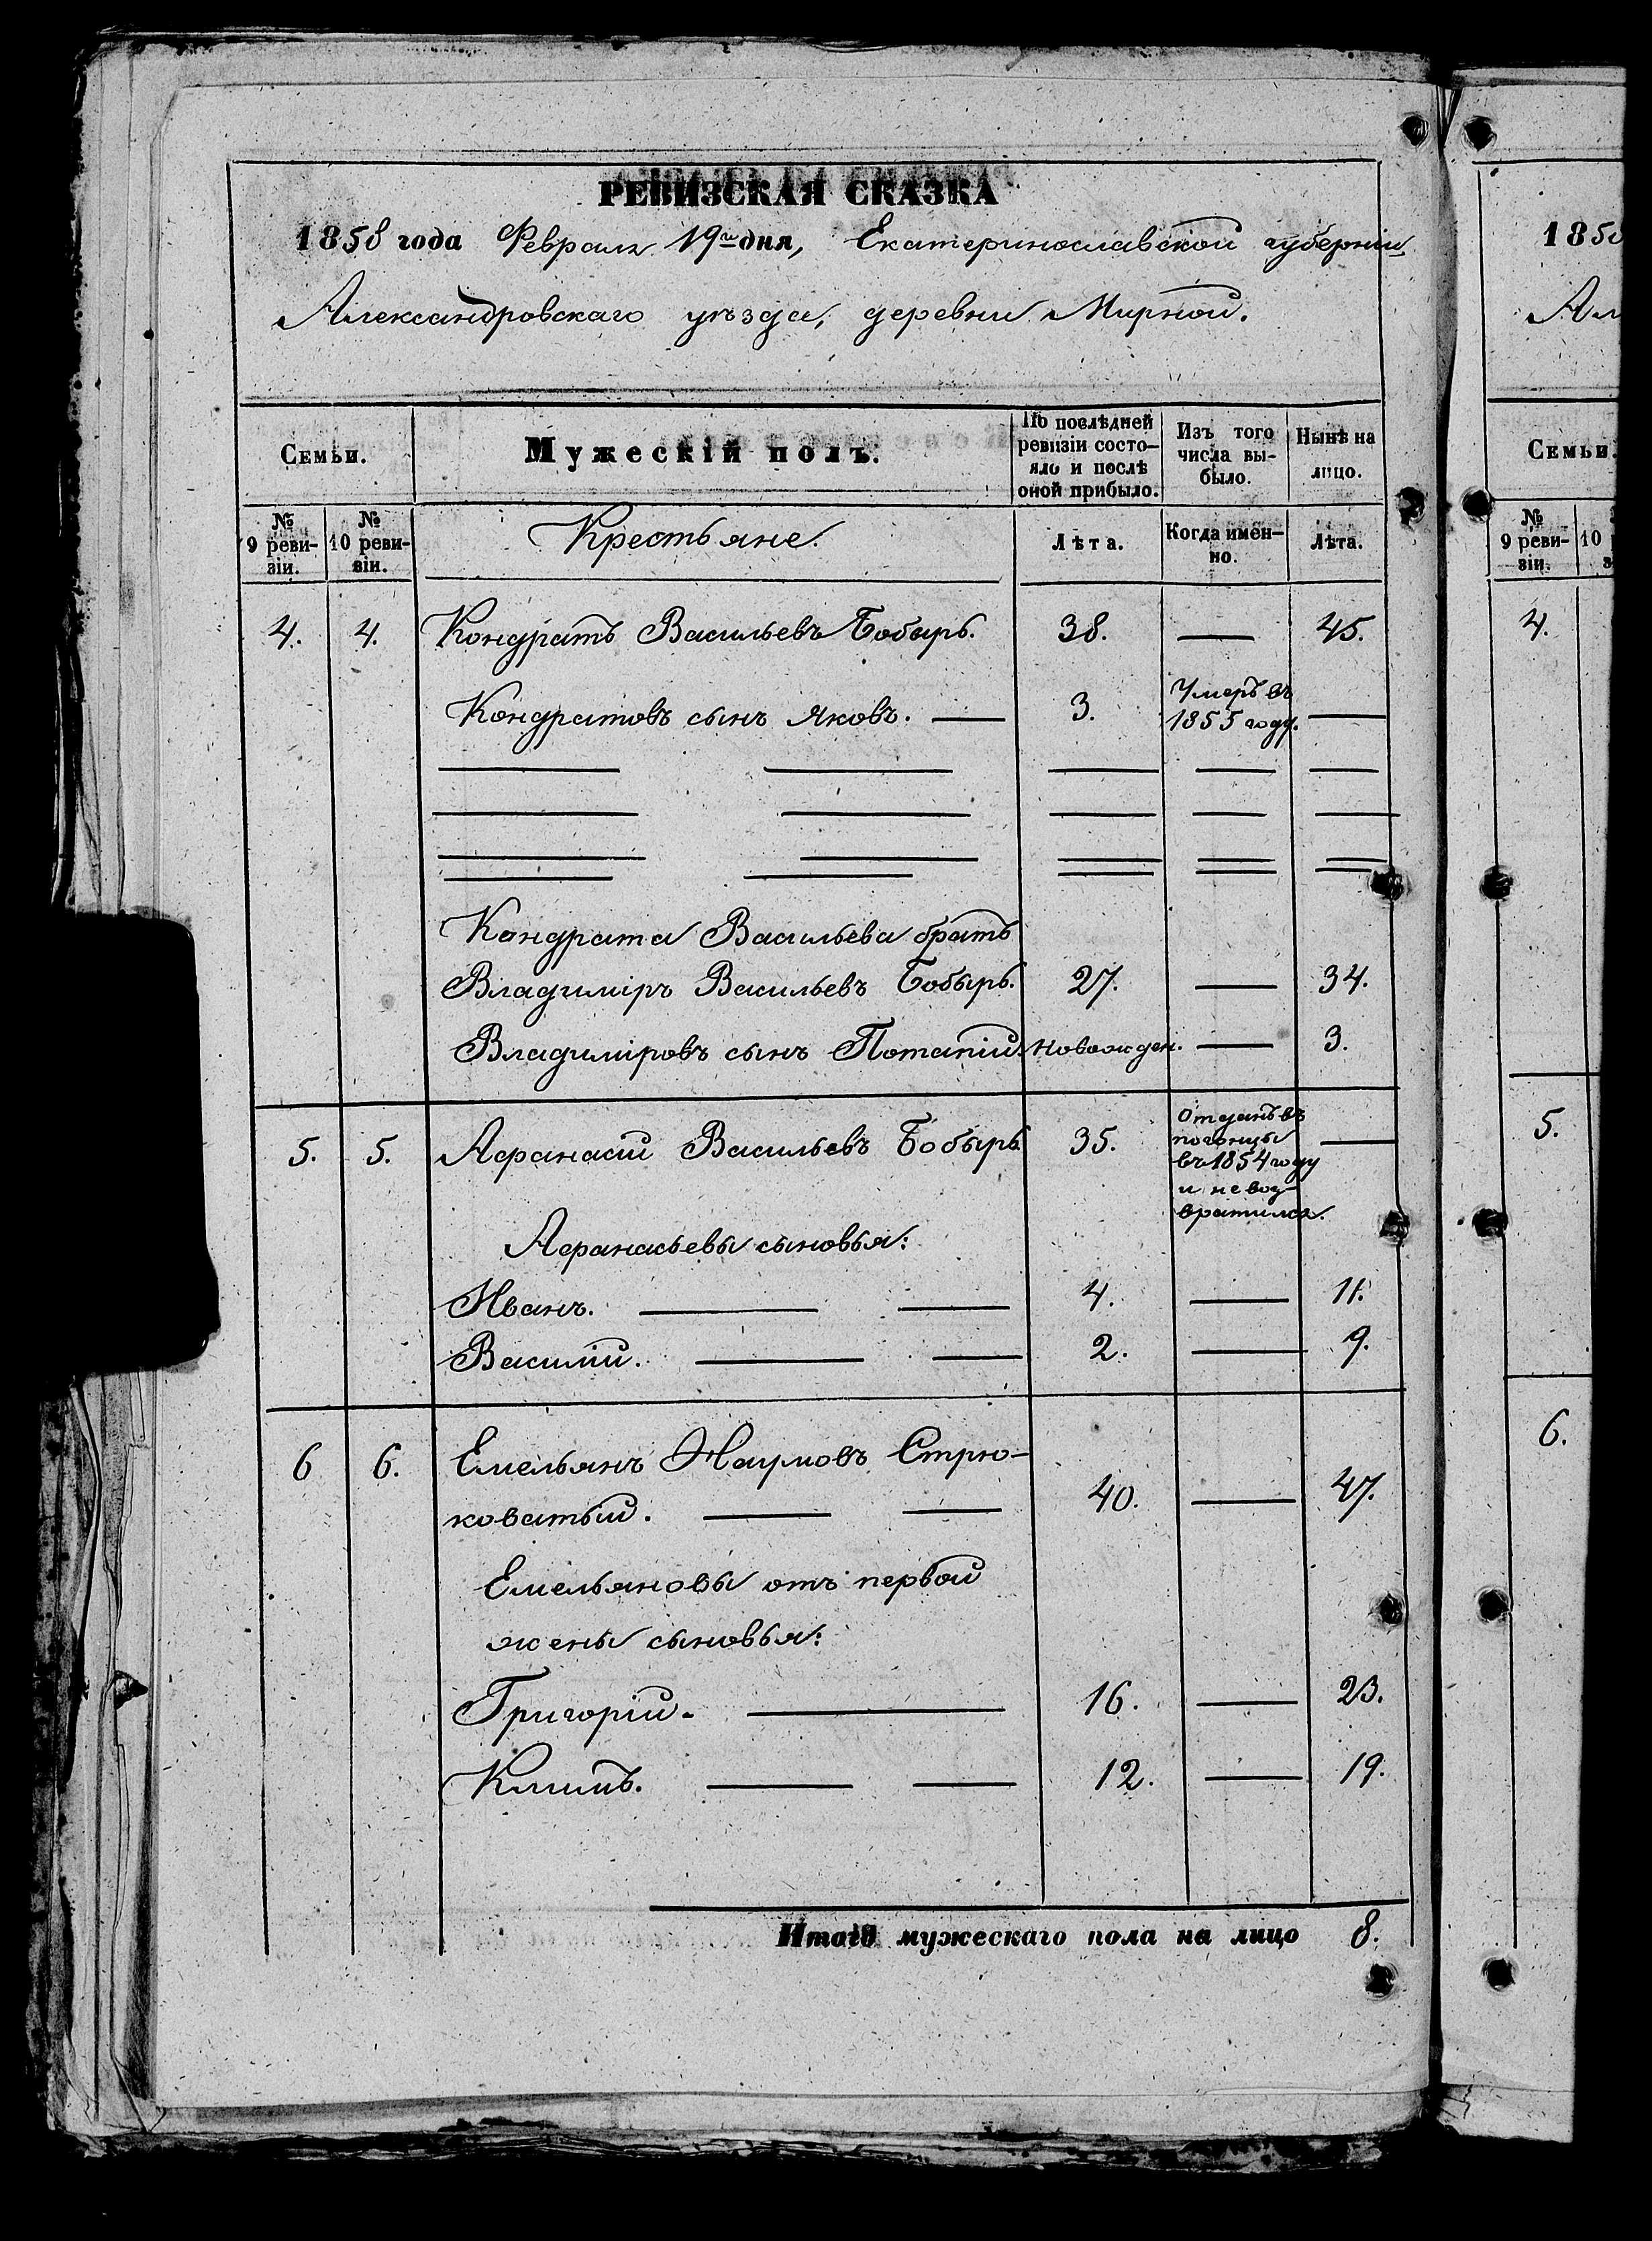 РЕВИЗСКАЯ СКАЗКА
1858 года Февраля 19го дня, Екатеринославской губерніи
Александровскаго уѣзда, деревни Мирной.
Семьи.
Мужескій полъ.
По послѣдней
ревизіи состо-
яло и послѣ
оной прибыло.
Изъ того
числа вы-
было.
Нынѣ на
лицо.
№
9 реви-
зіи.
№
10 реви-
зіи.
Крестьяне.
Лѣта.
Когда имен-
но.
Лѣта.
4. 4. Кондратъ Васильевъ Бобырь. 38. — 45.
Кондратовъ сынъ Яковъ. — 3. Умеръ въ
1855 году. —
Кондрата Васильева братъ
Владиміръ Васильевъ Бобырь. 27. — 34.
Владиміровъ сынъ Потапій. Новожден. — 3.
5. 5. Афанасій Васильевъ Бобырь 35. Отданъ въ
погонцы
въ 1854 году
и невоз-
вратился. —
Афанасьевы сыновья:
Иванъ. — 4. — 11.
Василій. — 2. — 9.
6 6. Емельянъ Наумовъ Стрю-
коватый. — 40. — 47.
Емельяновы отъ первой
жены сыновья:
Григорій. — 16. — 23.
Климъ. — 12. — 19.
Итого мужескаго пола на лицо 8.
185
Ал
Семьи.
№
9 реви-
зіи.
10
з
4.
5.
6.